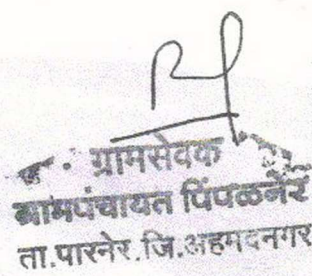 ग्रामसेवक
ग्रामपंचायत पिंपळनेर
ता.पारनेर.जि.अहमदनगर